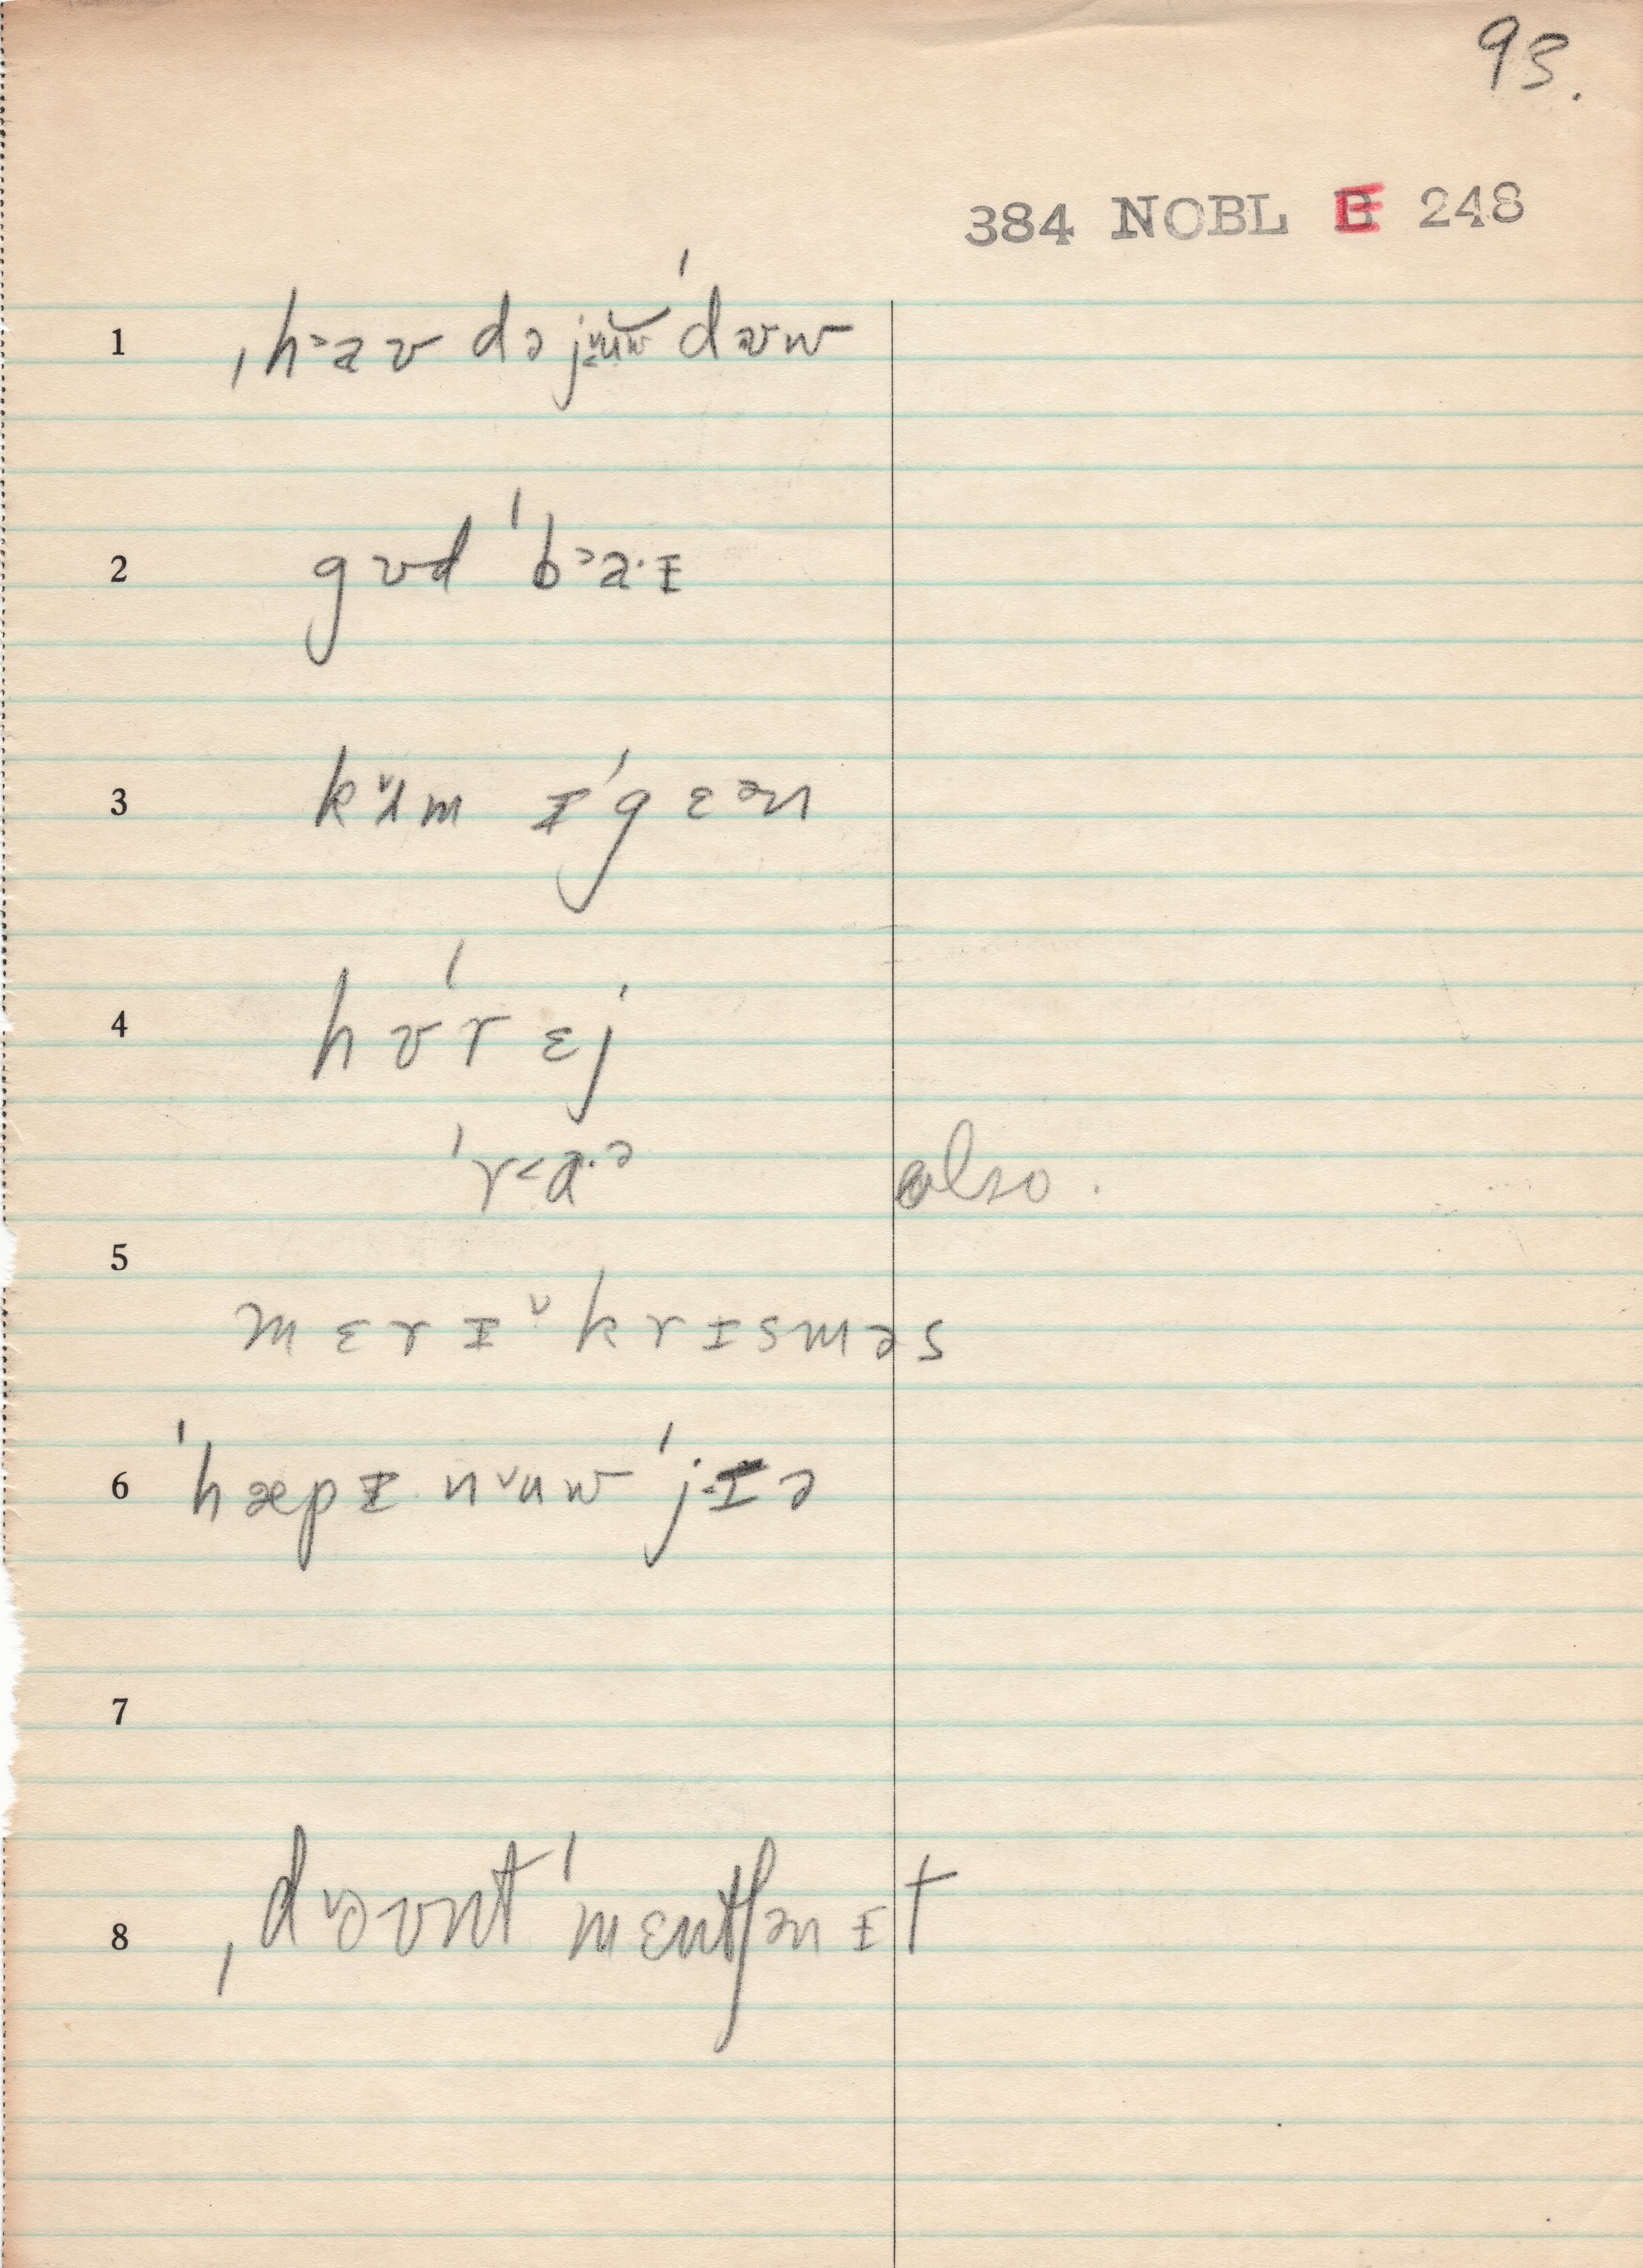 93.
384 NOBL E 248
1 ˌh˃aʊ də j˂ᵛuw ˈdʊw
2 gʊd ˈb˃a·ɪ
3 kᵛʌm ɪˈgɛən
4 hʊˈrɛj
ˈr˂ɑ·ə also.
5
mɛrɪ ᵛkrɪsməs
6 ˈhæpɪ nᵛuw ˈj˂ɪə
7
8 ˌdᵛoʊnt ˈmɛntʃən ɪt